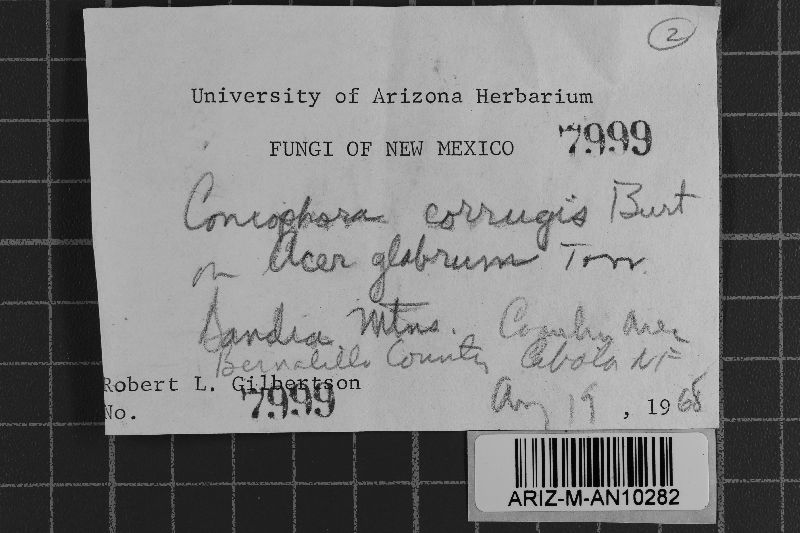 2
University of Arizona Herbarium
FUNGI OF NEW MEXICO 7999
Coniophora corrugis Burt
on Acer glabrum Torr.
Sandia Mtns. Area
Bernalillo County Cibola NF
Robert L. Gilbertson
No. 7999 Aug 19, 1968
ARIZ-M-AN10282